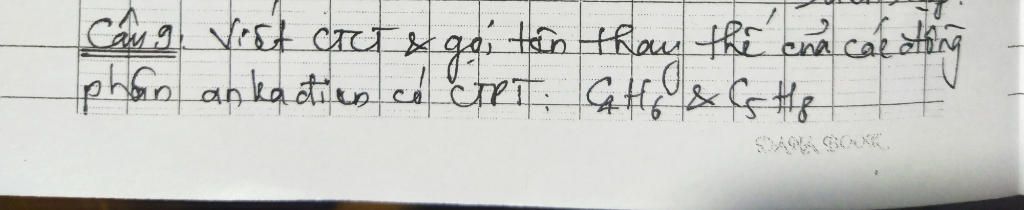 Câu 9: Viết CTCT & gọi tên thay thế của các đồng
phân ankađien có CTPT: C₄H₆ & C₅H₈
DANA BOOK